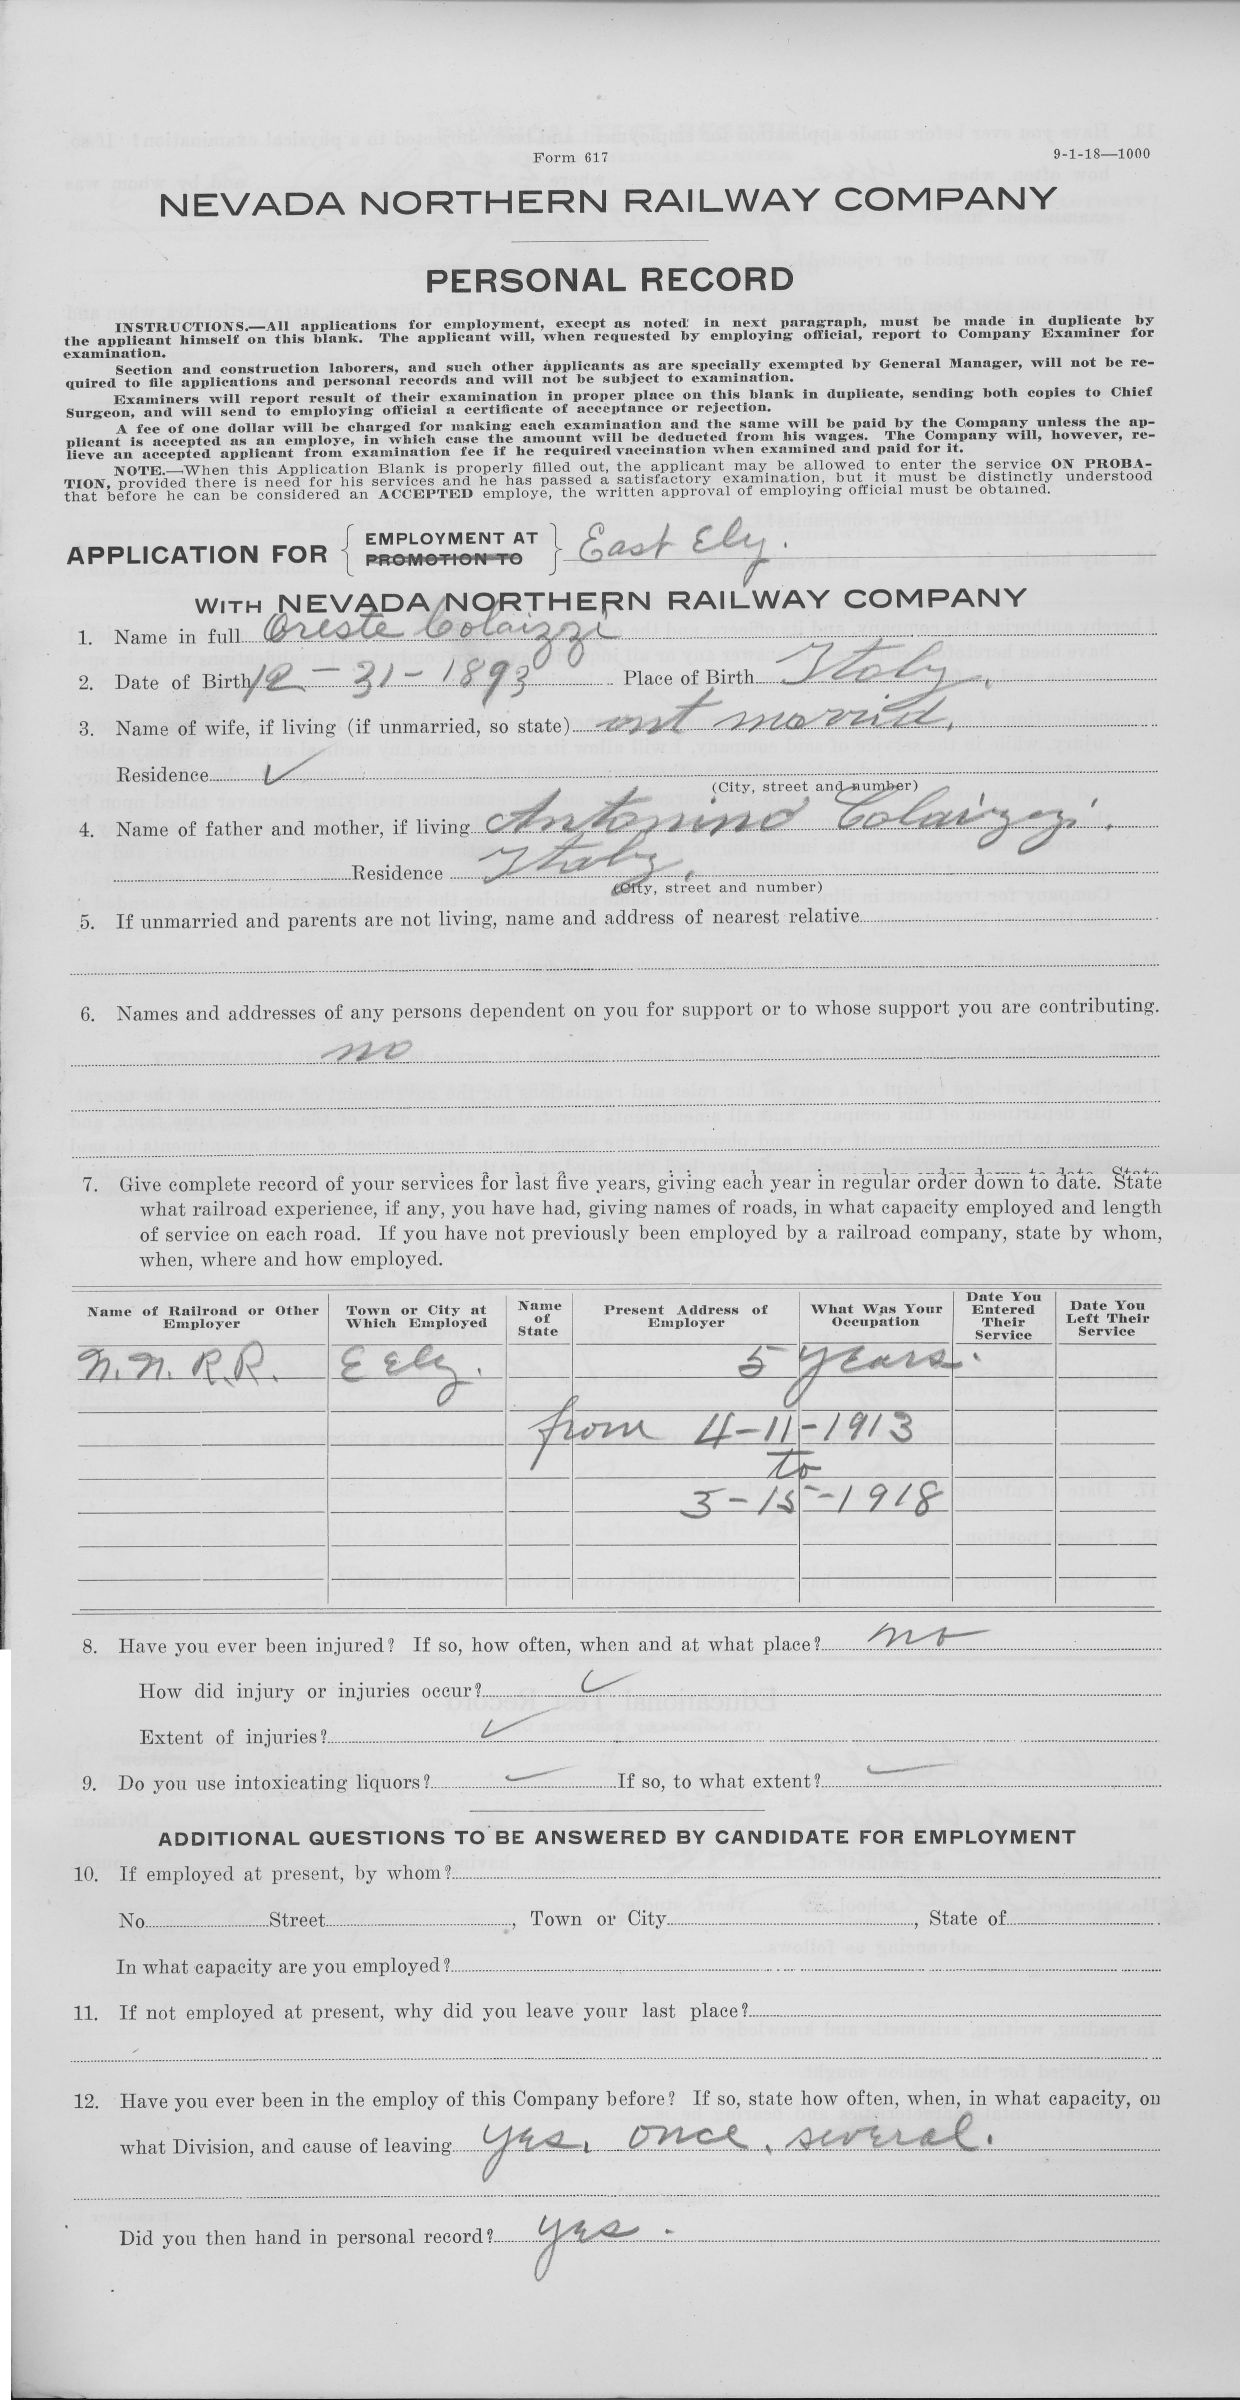 Form 617
9-1-18—1000
NEVADA NORTHERN RAILWAY COMPANY
PERSONAL RECORD
INSTRUCTIONS.—All applications for employment, except as noted in next paragraph, must be made in duplicate by
the applicant himself on this blank. The applicant will, when requested by employing official, report to Company Examiner for
examination.
Section and construction laborers, and such other applicants as are specially exempted by General Manager, will not be re-
quired to file applications and personal records and will not be subject to examination.
Examiners will report result of their examination in proper place on this blank in duplicate, sending both copies to Chief
Surgeon, and will send to employing official a certificate of acceptance or rejection.
A fee of one dollar will be charged for making each examination and the same will be paid by the Company unless the ap-
plicant is accepted as an employe, in which case the amount will be deducted from his wages. The Company will, however, re-
lieve an accepted applicant from examination fee if he required vaccination when examined and paid for it.
NOTE.—When this Application Blank is properly filled out, the applicant may be allowed to enter the service ON PROBA-
TION, provided there is need for his services and he has passed a satisfactory examination, but it must be distinctly understood
that before he can be considered an ACCEPTED employe, the written approval of employing official must be obtained.
APPLICATION FOR { EMPLOYMENT AT PROMOTION TO } East Ely.
WITH NEVADA NORTHERN RAILWAY COMPANY
1. Name in full Oreste Colaizzi
2. Date of Birth 12-31-1893 Place of Birth Italy.
3. Name of wife, if living (if unmarried, so state) not married.
Residence ✓
(City, street and number)
4. Name of father and mother, if living Antonino Colaizzi.
Residence Italy.
(City, street and number)
5. If unmarried and parents are not living, name and address of nearest relative
6. Names and addresses of any persons dependent on you for support or to whose support you are contributing.
no
7. Give complete record of your services for last five years, giving each year in regular order down to date. State
what railroad experience, if any, you have had, giving names of roads, in what capacity employed and length
of service on each road. If you have not previously been employed by a railroad company, state by whom,
when, where and how employed.
Name of Railroad or Other Employer
Town or City at Which Employed
Name of State
Present Address of Employer
What Was Your Occupation
Date You Entered Their Service
Date You Left Their Service
N. N. R.R. E Ely. 5 years.
from 4-11-1913
to
3-15-1918
8. Have you ever been injured? If so, how often, when and at what place? no
How did injury or injuries occur? ✓
Extent of injuries? ✓
9. Do you use intoxicating liquors? ✓ If so, to what extent? ✓
ADDITIONAL QUESTIONS TO BE ANSWERED BY CANDIDATE FOR EMPLOYMENT
10. If employed at present, by whom?
No. Street, Town or City, State of
In what capacity are you employed?
11. If not employed at present, why did you leave your last place?
12. Have you ever been in the employ of this Company before? If so, state how often, when, in what capacity, on
what Division, and cause of leaving yes. once. several.
Did you then hand in personal record? yes.